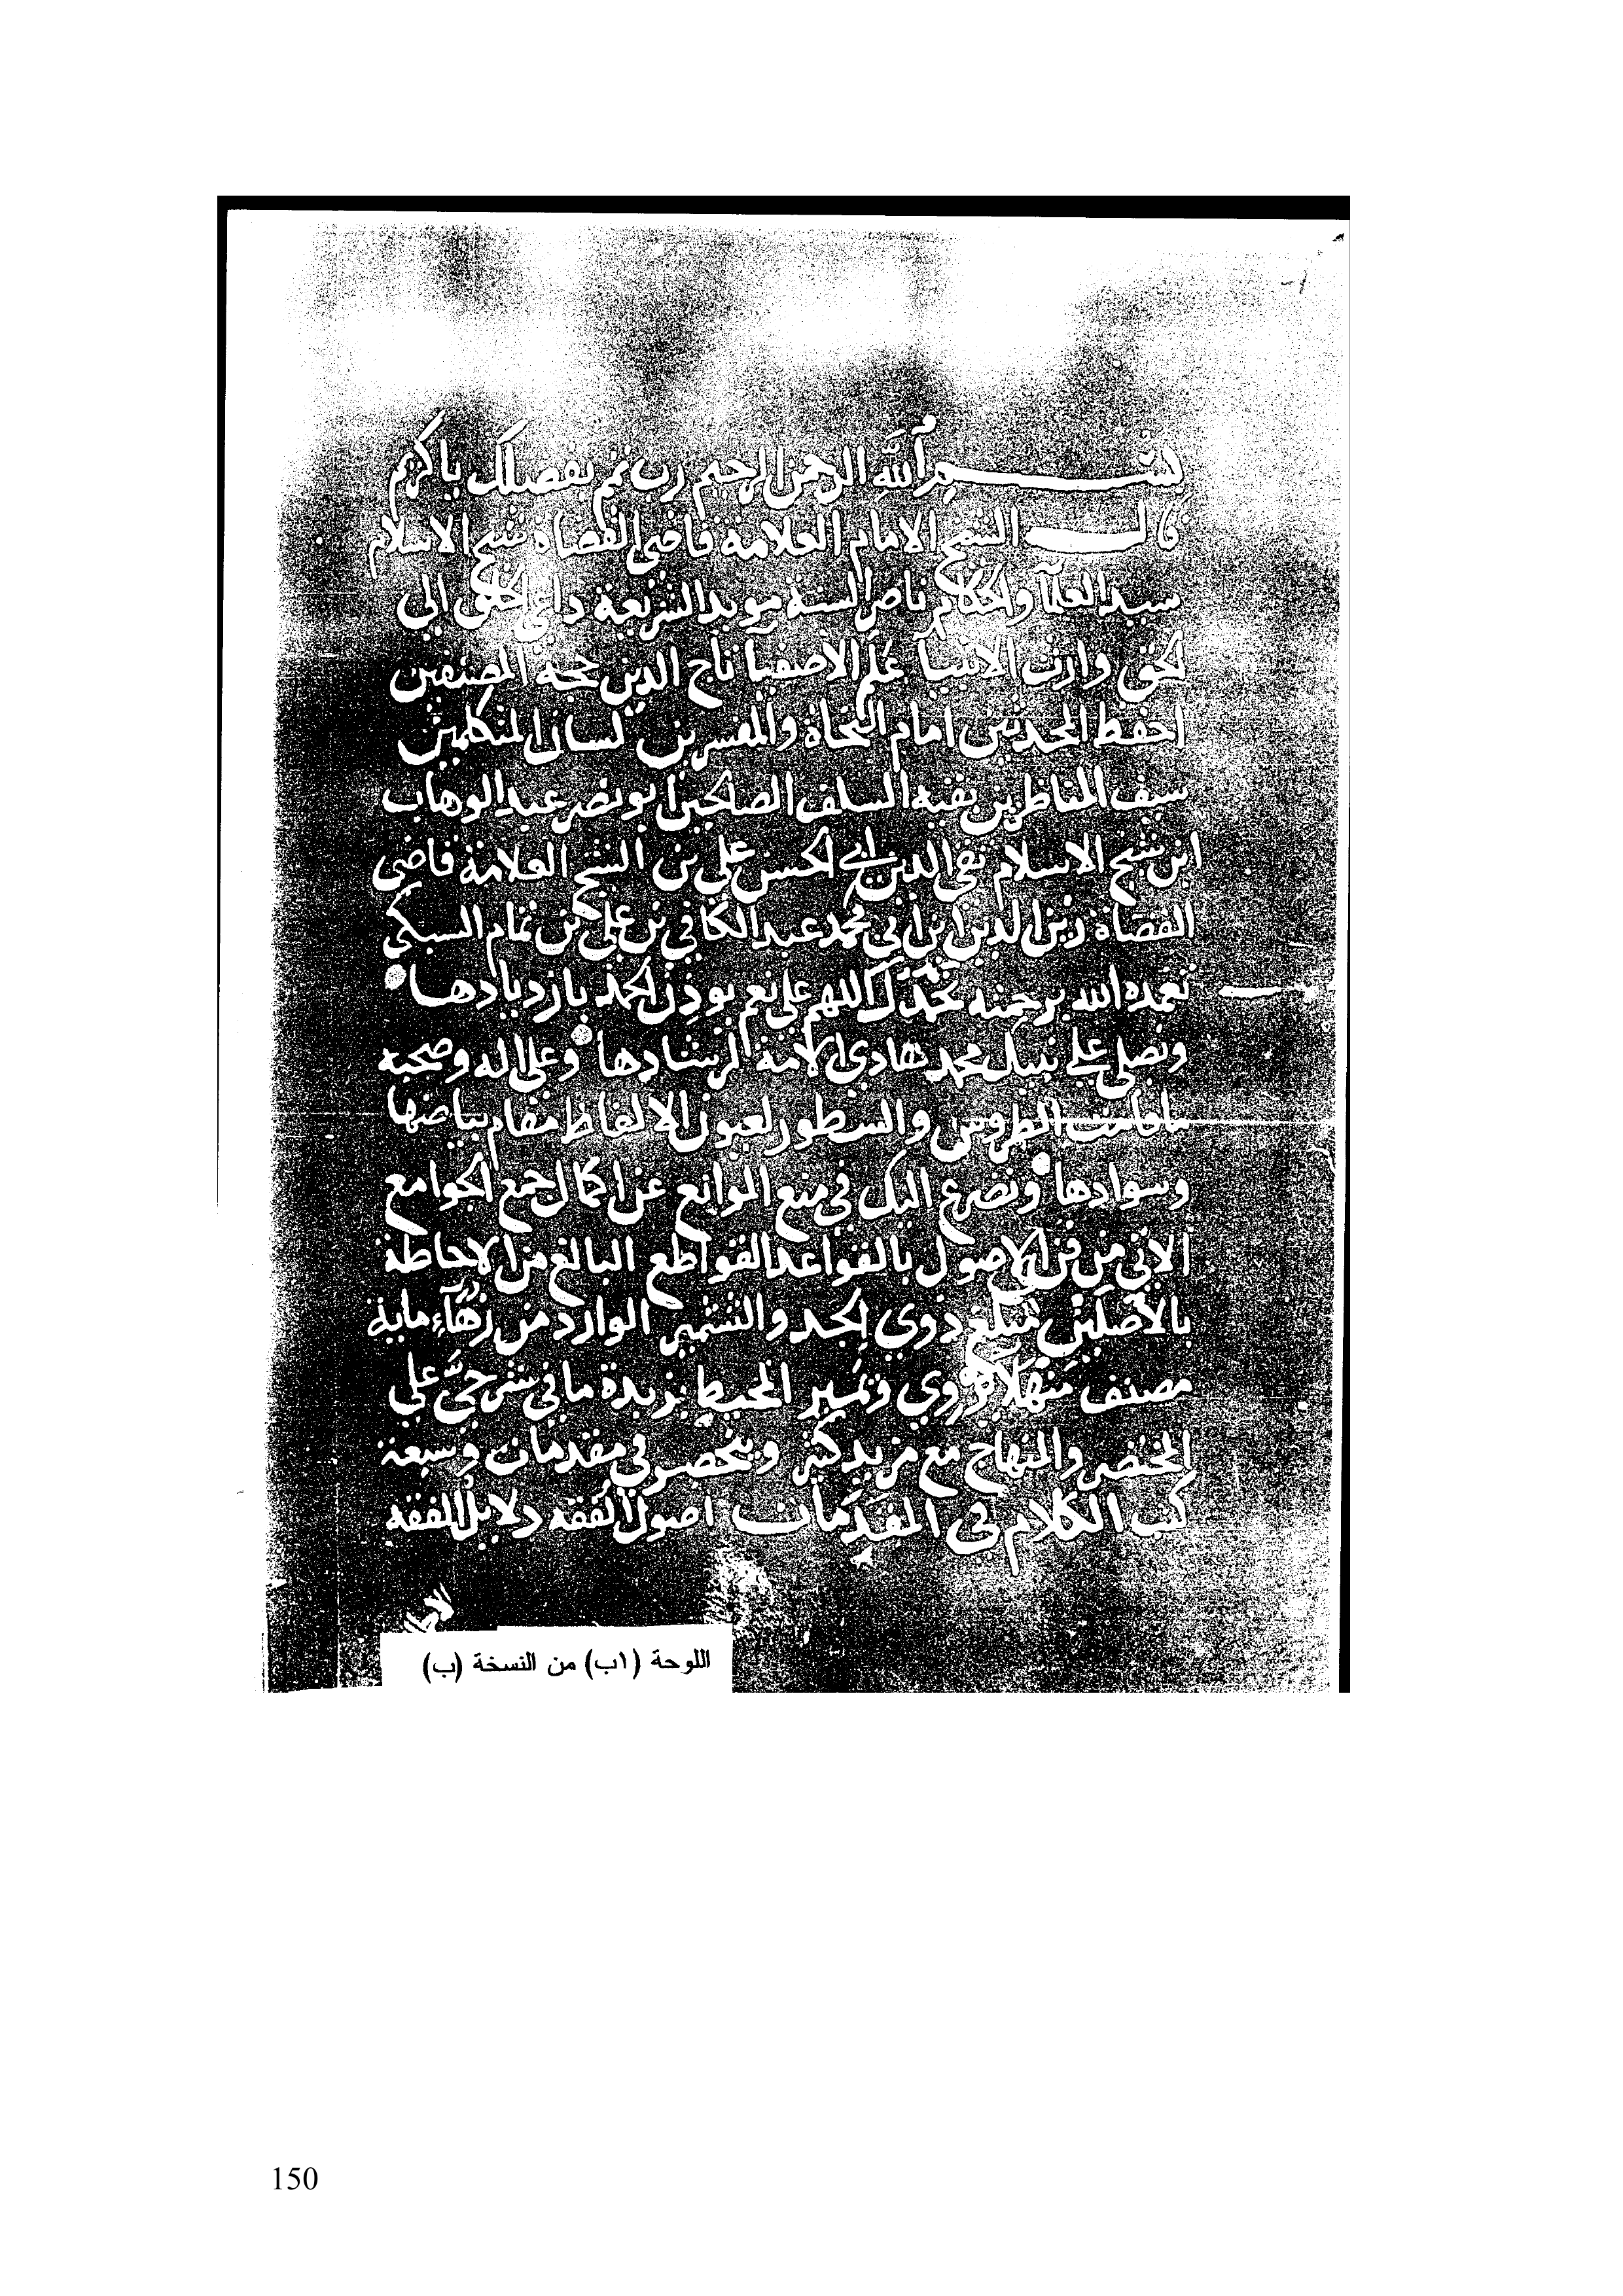 بسم الله الرحمن الرحيم رب تمم بفضلك يا كريم
قال الشيخ الامام العلامة قاضي القضاة شيخ الاسلام
سيد العلمآ والحكام ناصر السنة مويد الشريعة داعي الخلق الى
الحق وارث الانبيآ علم الاصفيآ تاج الدين حجة المصنفين
احفظ المحدثين امام النحاة والمفسرين لسان المتكلمين
سيف المناظرين بقية السلف الصالحين ابو نصر عبد الوهاب
ابن شيخ الاسلام تقي الدين ابي الحسن علي بن الشيخ العلامة قاضي
القضاة زين الدين ابن ابي محمد عبد الكافي بن علي بن تمام السبكي
تغمده الله برحمته نحمدك اللهم على نعم يوذن الحمد بازديادها
ونصلي على نبيك محمد هادي الامة لرشادها وعلى اله وصحبه
ماقامت الطروس والسطور لعيون الالفاظ مقام بياضها
وسوادها ونضرع اليك في منع الموانع عن اكمال جمع الجوامع
الاتي من فن الاصول بالقواعد القواطع البالغ من الاحاطة
بالاصلين مبلغ ذوي الجد والتشمير الوارد من زهآء ماية
مصنف منهلا يروي ويمير المحيط بزبدة ما في شرحيَّ على
المختصر والمنهاج مع مزيد كثير وينحصر في مقدمات وسبعة
كتب الكلام في المقدمات اصول الفقه دلايل الفقه
اللوحة (١ب) من النسخة (ب)
150